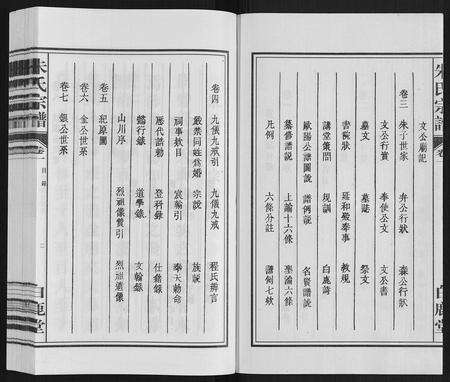 朱氏宗譜
卷一
白鹿堂
文公廟記
卷三 朱子世家 弁公行狀 森公行狀
文公行實 奉使公文 文公書
墓文 墓誌 祭文
書院狀 延和殿奏事 教規
講堂策問 規訓 白鹿詩
歐陽公譜圖說 譜例說 名賢譜說
纂修譜說 上諭十六條 聖諭六條
凡例 六條分註 譜例七欵
卷四 九儀九戒引 九儀九戒 程氏辨言
嚴禁同姓為婚 宗說 族說
祠事款目 宸翰引 奉天勅命
歷代誥勅 登科錄 仕籍錄
懿行錄 道學錄 文翰錄
山川序 烈祖儀贊引 烈祖遺像
卷五 祀原圖
卷六 金公世系
卷七 銀公世系
朱氏宗譜
卷一
目錄
二
白鹿堂